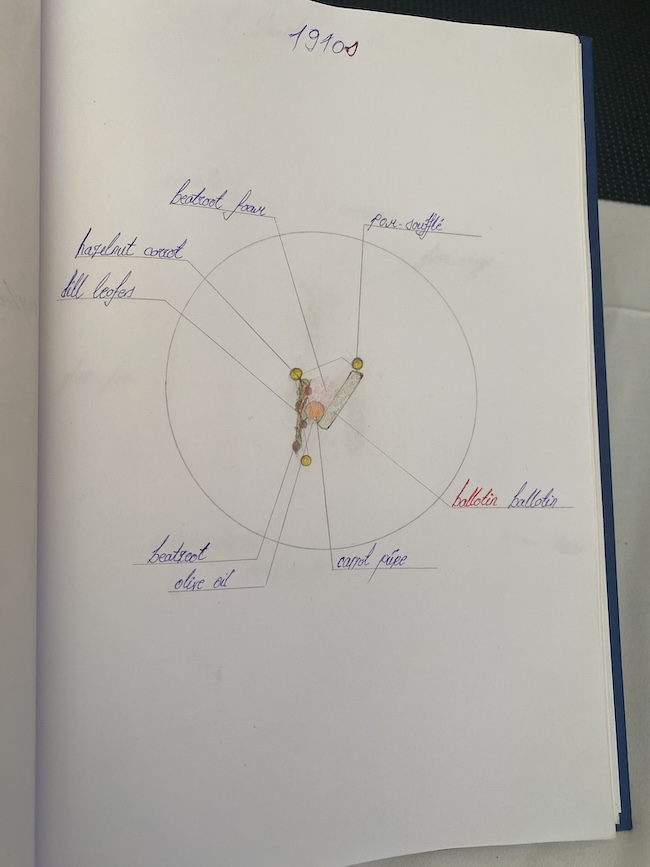 1910s
beatroot foam
pom-soufflé
hazelnut carrot
dill leafes
ballotin ballotin
beatroot
olive oil
carrot púpe